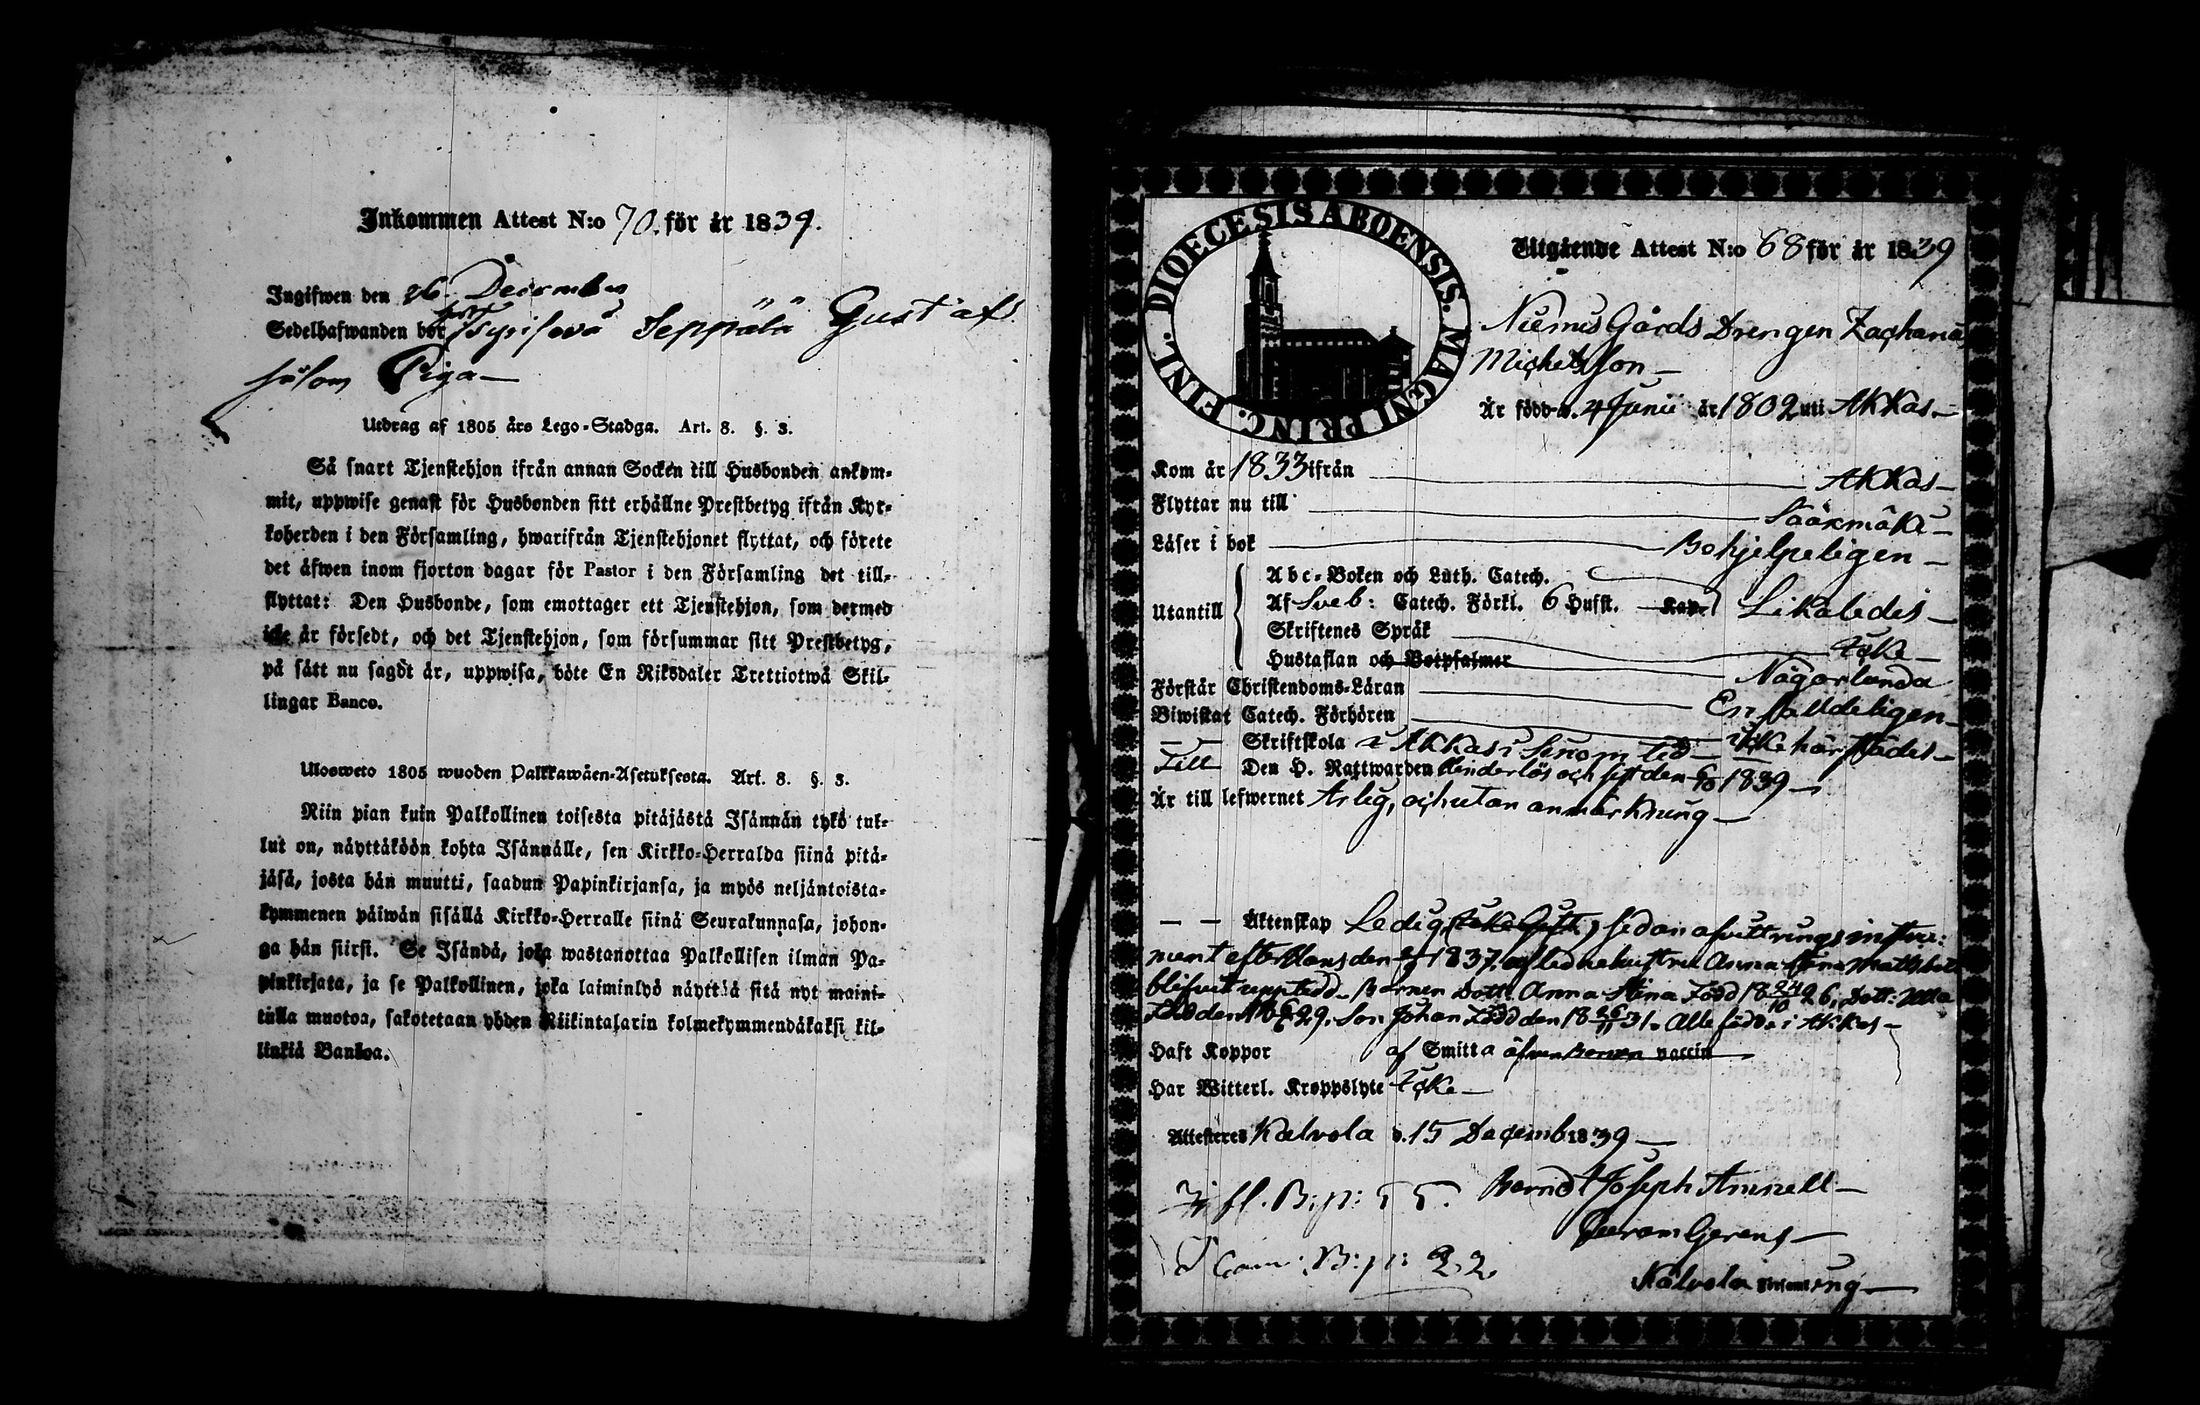 Inkommen Attest N:o 70. för år 1839.
Ingifwen den 26. December
Sedelhafwanden bor Seppälä Gustafs
Piga
Utdrag af 1805 års Lego-Stadga. Art. 8. §. 3.
Så snart Tjenstehjon ifrån annan Socken till Husbonden ankom-
mit, uppwise genast för Husbonden sitt erhållne Prestbetyg ifrån Kyr-
koherden i den Församling, hwarifrån Tjenstehjonet flyttat, och förete
det äfwen inom fjorton dagar för Pastor i den Församling det till-
flyttat: Den Husbonde, som emottager ett Tjenstehjon, som dermed
icke är försedt, och det Tjenstehjon, som försummar sitt Prestbetyg,
på sätt nu sagdt är, uppwisa, böte En Riksdaler Trettiotwå Skil-
lingar Banco.
Ulosweto 1805 wuoden Palkkawäen-Asetuksesta. Art. 8. §. 3.
Niin pian kuin Palkollinen toisesta pitäjästä Isännän tykö tul-
lut on, näyttäköön kohta Isännälle, sen Kirkko-Herralda siinä pitä-
jäsä, josta hän muutti, saadun Papinkirjansa, ja myös neljäntoista-
kymmenen päiwän sisällä Kirkko-Herralle siinä Seurakunnasa, johon-
ga hän siirsi. Se Isändä, joka wastanottaa Palkollisen ilman Pa-
pinkirjata, ja se Palkollinen, joka laiminlyö näyttää sitä nyt maini-
tulla muotoa, sakotetaan yhden Riikintalarin kolmekymmendäkaksi kil-
linkiä Bankoa.
DIOECESIS ABOENSIS. MAGNI PRINC. FINL.
Utgående Attest N:o 68 för år 1839
Niemis Gårds Drengen Zacharias
Michelsson
Är född d. 4 Junii år 1802 uti Akkas
Kom år 1833 ifrån Akkas
Flyttar nu till Sääxmäki
Läser i bok Behjelpeligen
Utantill
Abc-Boken och Luth. Catech.
Af Sveb: Catech. Förkl. 6 Hufst. Kap. Likaledes
Skriftenes Språk Icke
Hustaflan och Botpsalmer Någorlunda
Förstår Christendoms-Läran Enfalldeligen
Biwistat Catech. Förhören icke här städes
Skriftskola i Akkas i sinom tid
Till Den H. Nattwarden och sist den 6/10 1839
Är till lefwernet Ärlig, och utan anmärkning
Äktenskap Ledig, sedan afvittrings instru:
ment efter Hans den 1837 aflednehustru Anna Stina Matts dott
blifvit upptedd. Barnen Dott. Anna Stina Född 18 24/10 26, Dott: Ulla
Född den 29. Son Johan Född den 18 26/11 31. Alle födde i Akkas
Haft Koppor af Smitta äfven Barnen vaccin
Har Witterl. Kroppslyte Icke
Attesteres Kalvola d. 15 Decemb 1839
Infl. B: p: 55. Berndt Joseph Amnell
Gerens
Comm. B: p: 22. Kalvola Församling